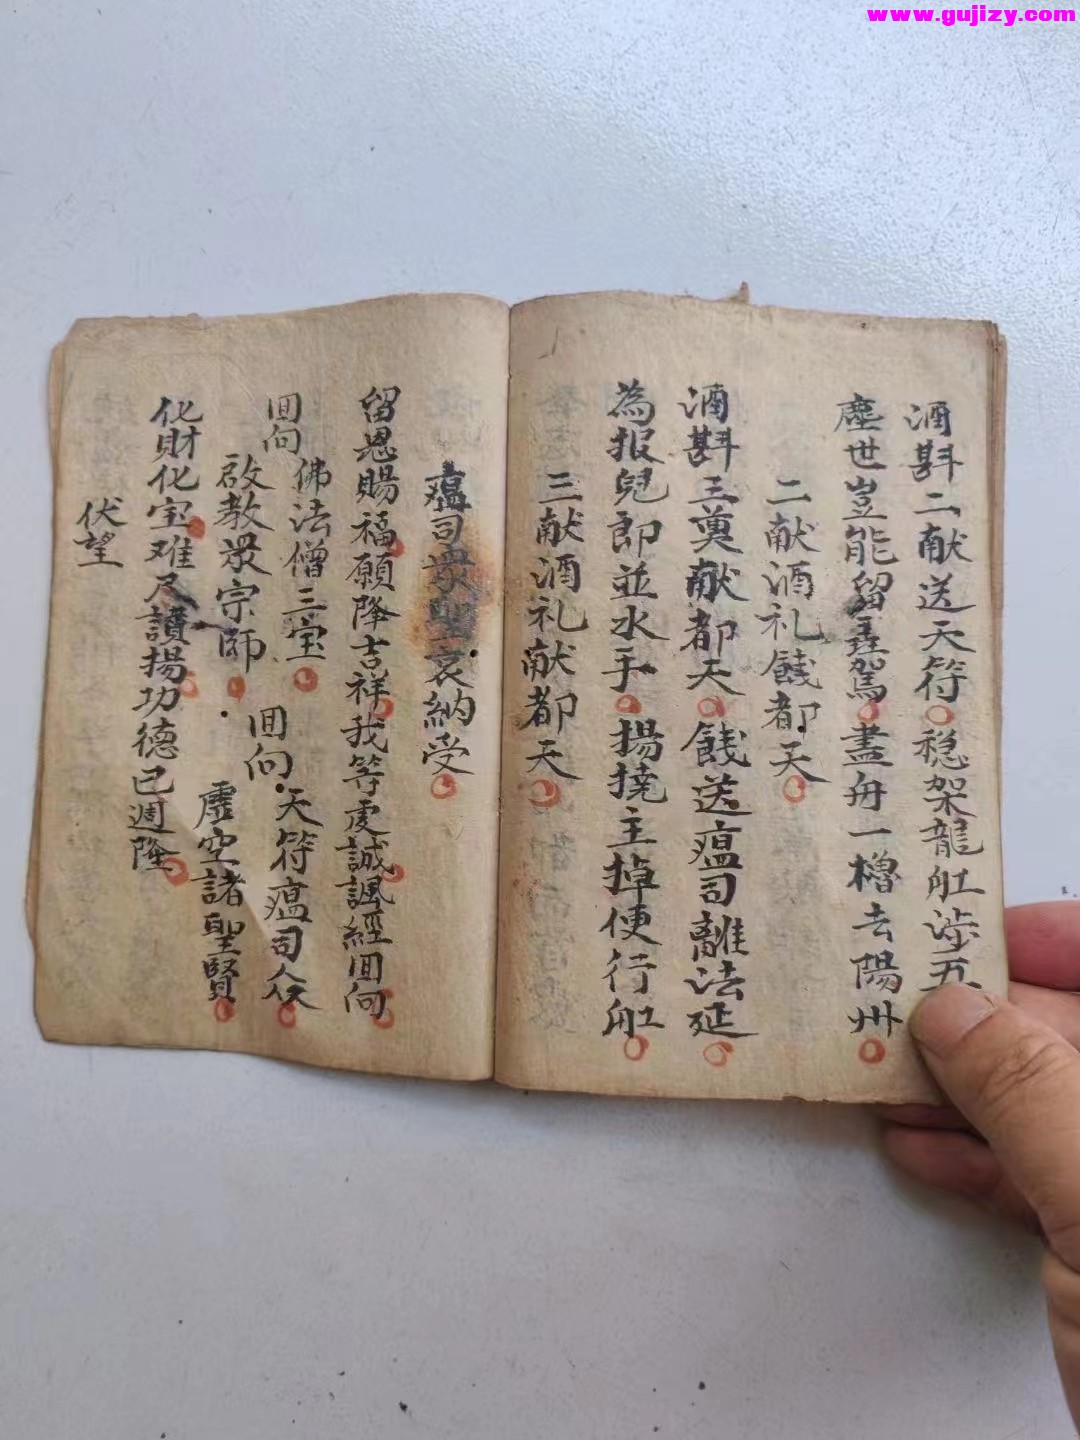 www.gujizy.com
酒斟二献送天符穏架龍舡涉五
塵世豈能留聖駕盡舟一櫓去陽州
二献酒礼餞都天
酒斟三奠献都天餞送瘟司離法延
為报兒郎並水手揚撓主掉便行舡
三献酒礼献都天
瘟司衆聖哀納受
留恩賜福願降吉祥我等虔誠諷經囬向
囬向佛法僧三宝天符瘟司众
啟教衆宗師囬向虚空諸聖賢
化財化宝难尽讃揚功德已週隆
伏望